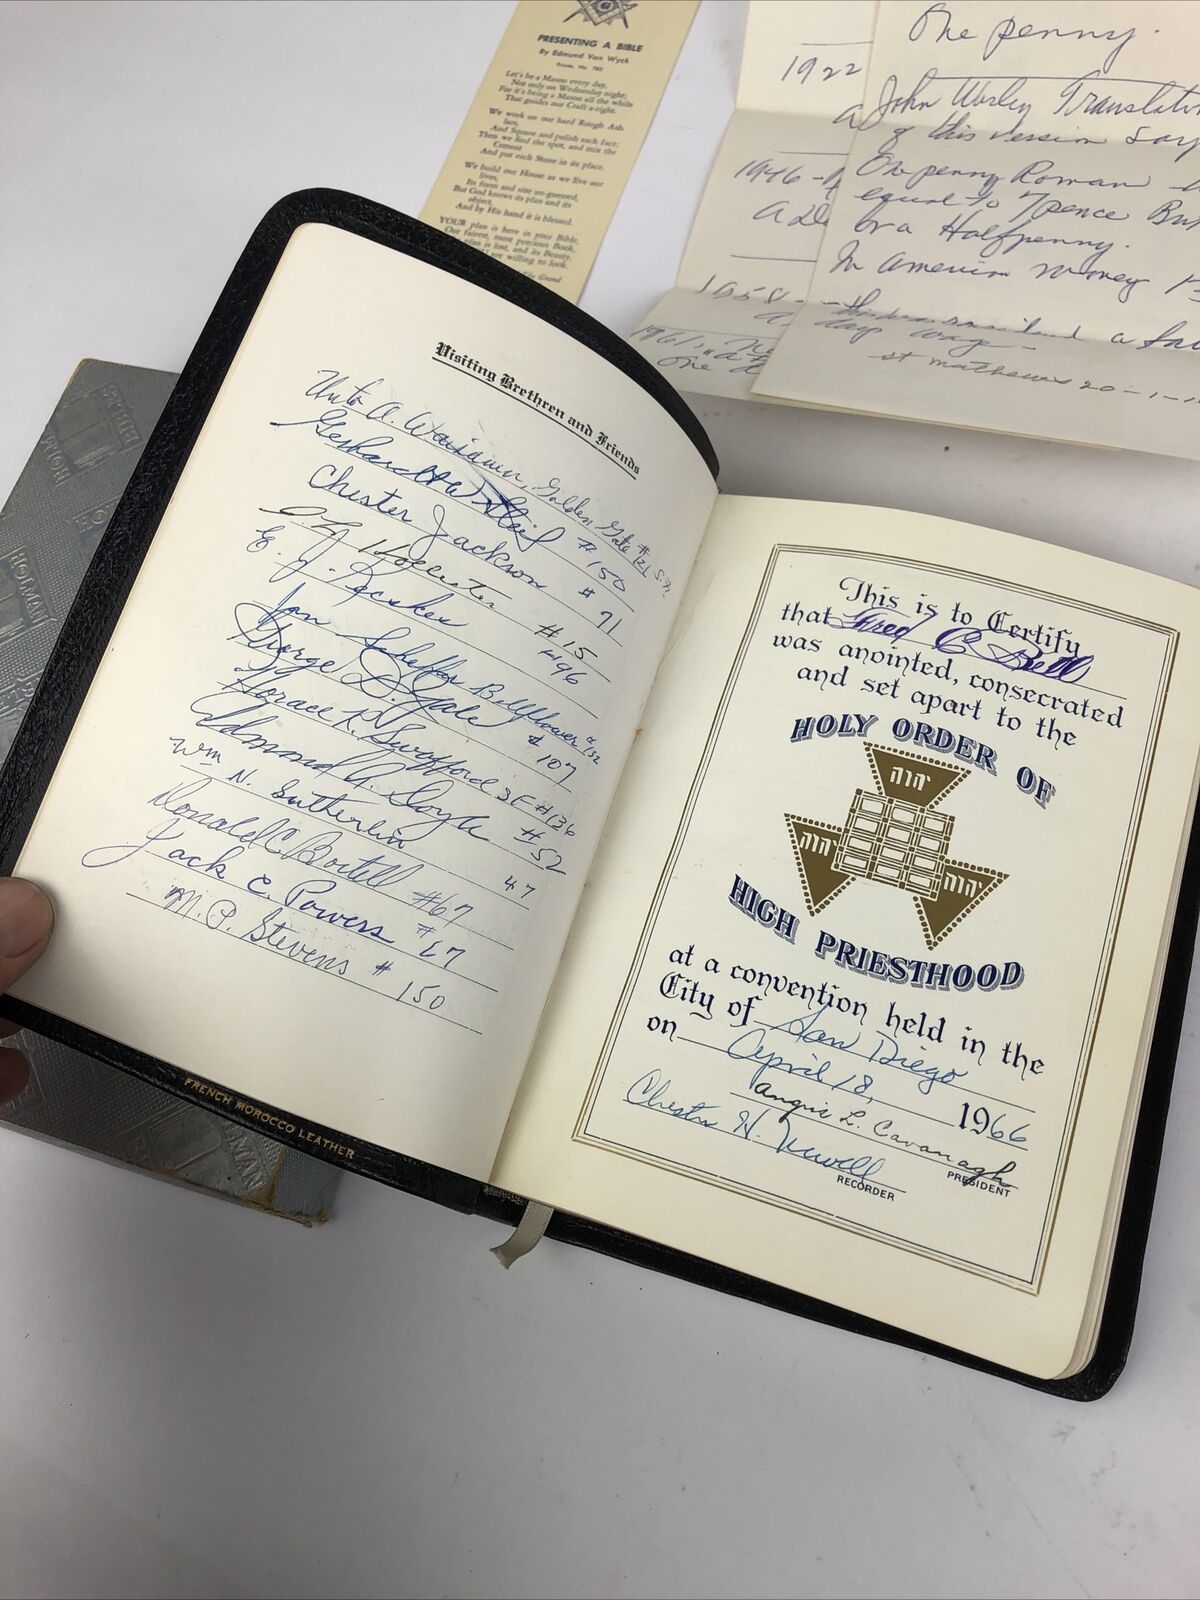 PRESENTING A BIBLE
By Edmund Van Wyck
Let's be a Mason every day,
Not only on Wednesday night;
For it's being a Mason all the while
That guides our Craft a-right.
We work on our hard Rough Ash
lars,
And Square and polish each face;
Then we find the spot, and mix the
Cement
And put each Stone in its place.
We build our House as we live our
lives,
Its form and size un-guessed,
But God knows its plan and its
object,
And by His hand it is blessed.
YOUR plan is here in your Bible,
Our fairest, most precious Book,
plan is lost, and its Beauty,
are willing to look.
1922
1946 -
1958 -
1961
One penny.
John Wesley Translation
of this version say
One penny Roman
equal to 7 pence
or a Halfpenny.
In American money
day wage -
st mathews 20-1-
Visiting Brethren and Friends
A. Golden Gate # S.F.
# 150
Chester Jackson # 71
Hollister # 15
E. J. #96
Jon Scheffer Bellflower # 132
George D. Gale # 107
Horace R. Swofford SE #136
Edmond A. Doyle # 52
Wm N. Sutherlin 47
Donald C. Bortell #67
Jack C. Powers #67
M. P. Stevens # 150
FRENCH MOROCCO LEATHER
HOLMAN
HOLMAN
This is to Certify
that Fred C. Bell
was anointed, consecrated
and set apart to the
HOLY ORDER OF
יהוה
יהוה
יהוה
HIGH PRIESTHOOD
at a convention held in the
City of San Diego
on April 18, 1966
Angus L. Cavanagh
PRESIDENT
Chester H. Newell
RECORDER